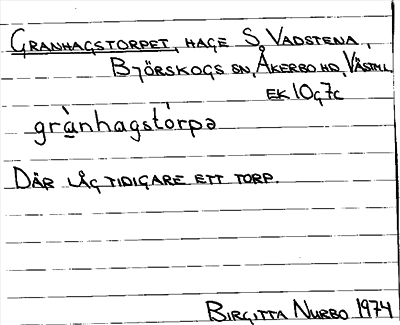 GRANHAGSTORPET, HAGE S VADSTENA,
BJÖRSKOGS SN, ÅKERBO HD, VÄSTML
EK 10G7c
grànhagstórpə
DÄR LÅG TIDIGARE ETT TORP.
BIRGITTA NURBO 1974